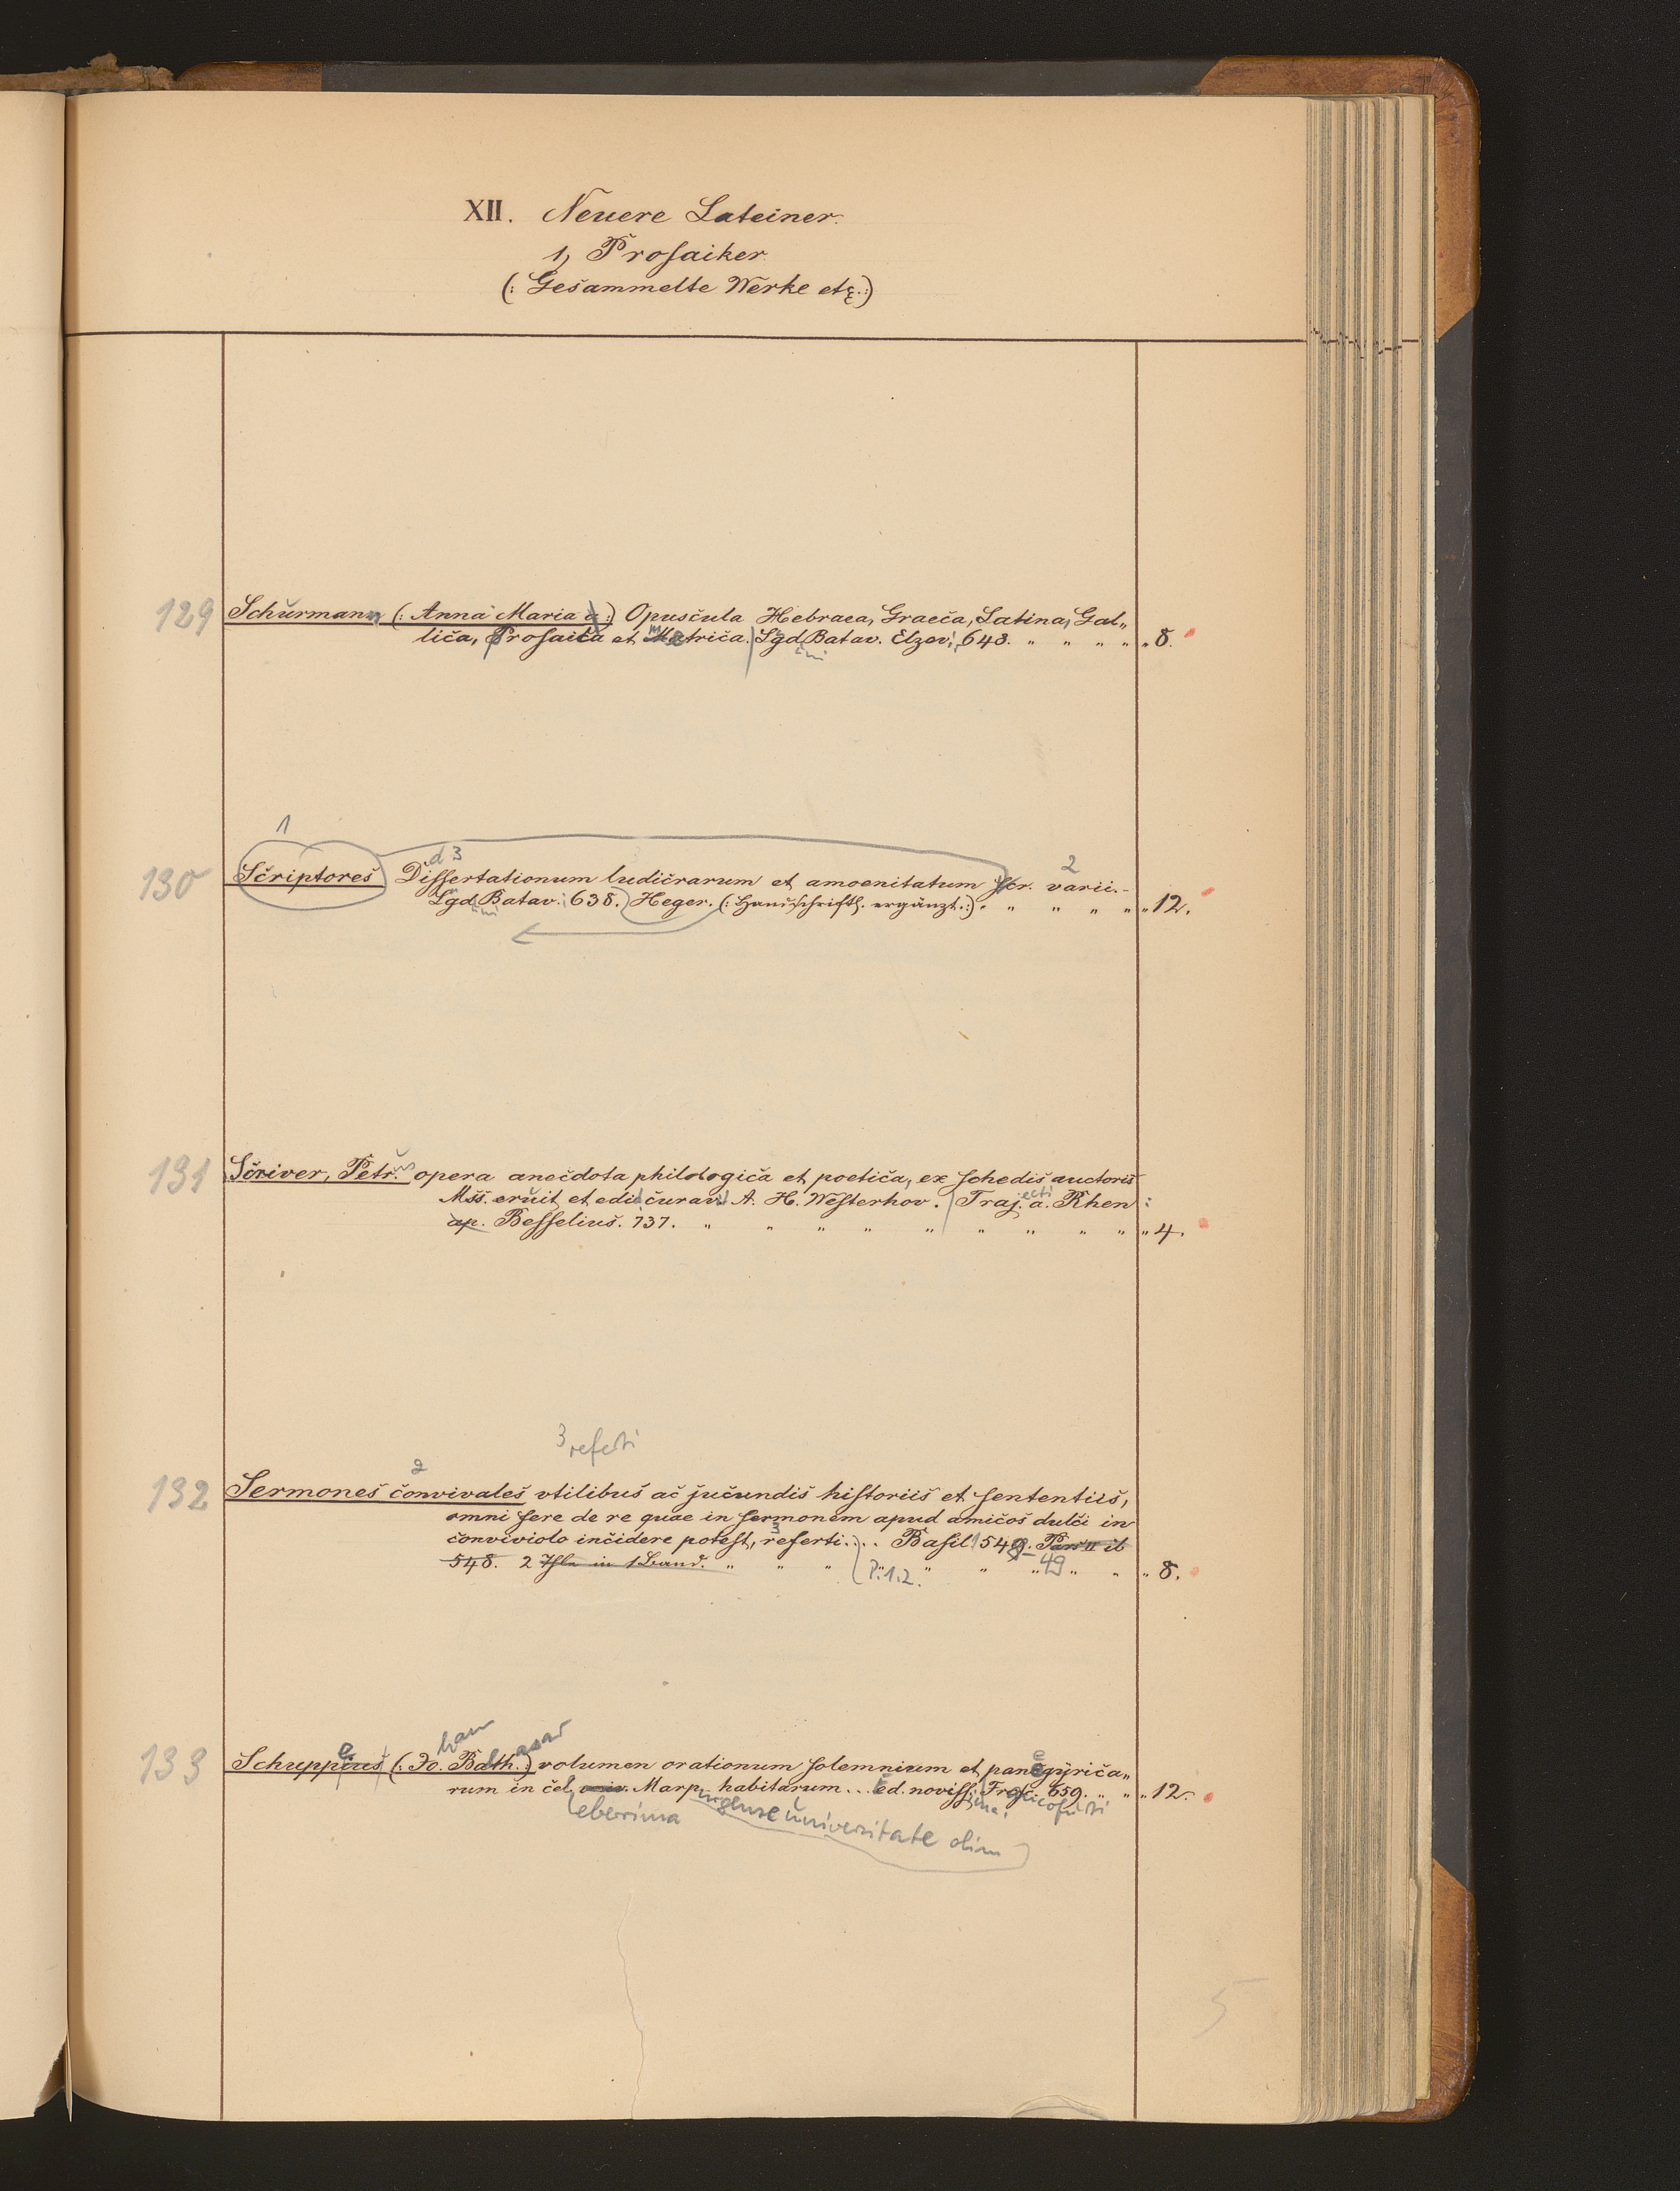 XII. Neuere Lateiner.
1, Prosaiker.
(: Gesammelte Werke etc. :)
129 Schurmann (: Anna Maria a :) Opuscula Hebraea, Graeca, Latina, Gal„
lica, Prosaica et Metrica. Lgd. Batav. Elzev. 648. „ „ „ „ „ 8.
ni
1
d 3
2
130 Scriptores Dissertationum ludicrarum et amoenitatum scr. varii. –
Lgd. Batav. 638. Heger. (: Handschriftl. ergänzt. :) „ „ „ „ „ „ 12.
ni
131 Scriver, Petr. us opera anecdota philologica et poetica, ex schedis auctoris
Mss. eruit et edi curavit A. H. Westerhov. Traj. ecti a. Rhen :
ap. Besselius. 737. „ „ „ „ „ „ „ „ „ „ 4.
3 referti
2
132 Sermones convivales utilibus ac jucundis historiis et sententiis,
omni fere de re quae in sermonem apud amicos dulci in
conviviolo incidere potest, referti. . . Basil. 549. Pars II ib
3
548. 2 Thle in 1 Band. „ „ „ P. 1.2. „ „ „ 49 „ „ „ 8.
han
asar
e
133 Schuppius (: Jo. Balth. :) volumen orationum solemnium et panegyrica„
rum in cel. univ. Marp. habitarum . . . ed. noviss. Frcf. 659. „ „ „ 12.
eberrima urgense universitate olim
ma.
ancofurti
5